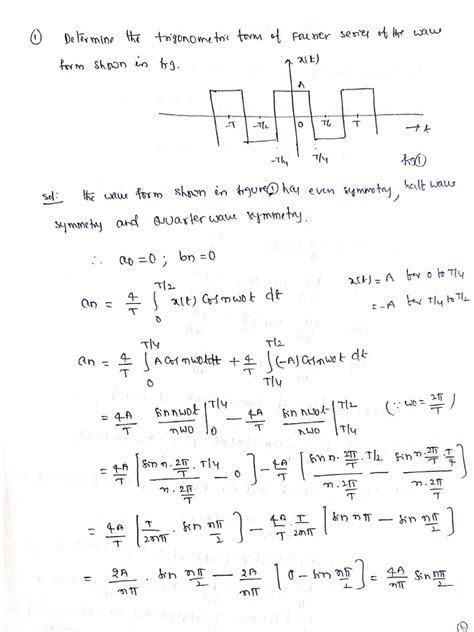 ① Determine the trigonometric form of Fourier series of the wave
form shown in fig.
x(t)
A
-T -T/2 0 T/2 T
→ t
-T/4 T/4
fig①
Sol: the wave form shown in figure① has even symmetry, half wave
symmetry and Quarter wave symmetry.
∴ a0 = 0 ; bn = 0
x(t) = A for 0 to T/4
= -A for T/4 to T/2
an = 4/T ∫_0^{T/2} x(t) Cos nω0t dt
an = 4/T ∫_0^{T/4} A cos nω0t dt + 4/T ∫_{T/4}^{T/2} (-A) Cos nω0t dt
= 4A/T sin nω0t / nω0 |_0^{T/4} - 4A/T sin nω0t / nω0 |_{T/4}^{T/2} (∵ ω0 = 2π/T)
= 4A/T [ sin n. 2π/T . T/4 / n. 2π/T - 0 ] - 4A/T [ sin n. 2π/T . T/2 / n. 2π/T - sin n. 2π/T . T/4 / n. 2π/T ]
= 4A/T [ T/2nπ . sin nπ/2 ] - 4A/T . T/2nπ [ sin nπ - sin nπ/2 ]
= 2A/nπ . sin nπ/2 - 2A/nπ [ 0 - sin nπ/2 ] = 4A/nπ sin nπ/2